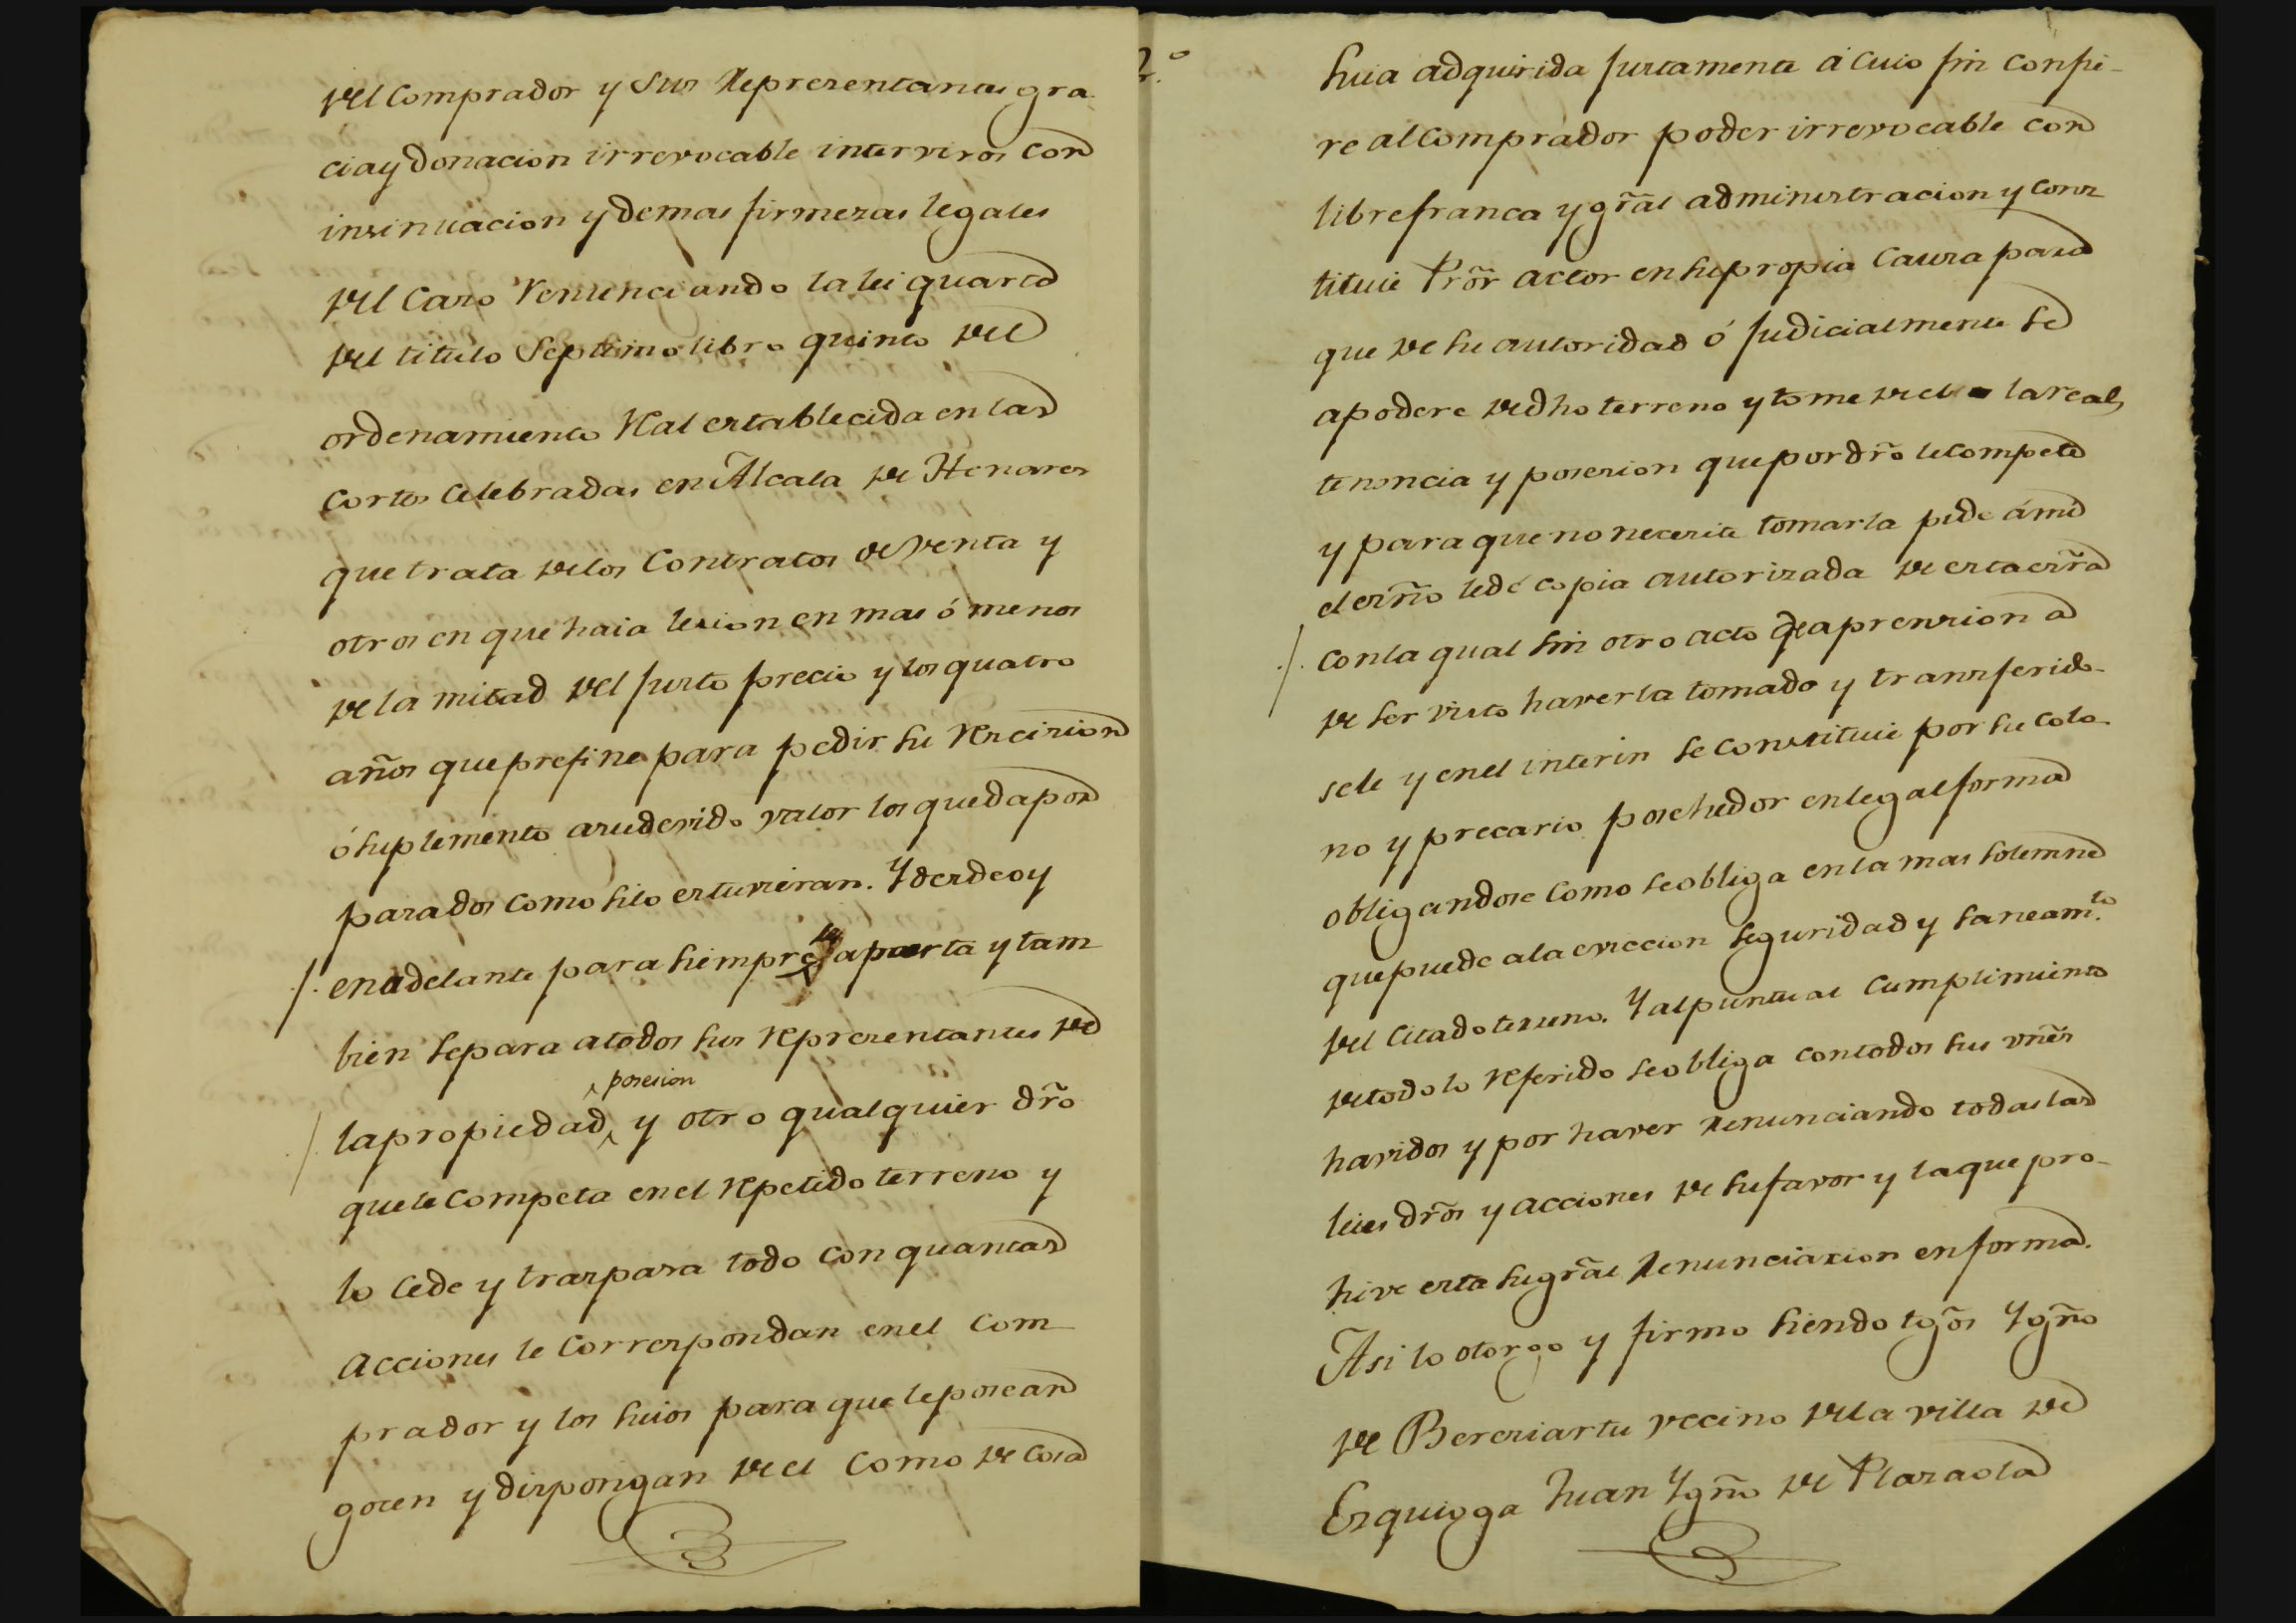 del Comprador y sus Representantes gra-
cia y donacion irrevocable intervivos con
insinuacion y demas firmezas legales
del caso renunciando la lei quarta
del titulo septimo libro quinto del
ordenamiento Real establecida en las
Cortes celebradas en Alcala de Henares
que trata de los contratos de venta y
otros en que haia lesion en mas ó menos
de la mitad del justo precio y los quatro
años que prefine para pedir su rescision
ó suplemento a su devido valor los queda por
pasados como si lo estuvieran. Y desde oy
en adelante para siempre se aparta y tam
bien separa a todos sus representantes de
la propiedad posesion y otro qualquier dro
que le competa en el repetido terreno y
lo cede y traspasa todo con quantas
acciones le correspondan en el com
prador y los suios para que le posean
gocen y dispongan de el como de cosa
2.º
suia adquirida justamente á cuio fin confie-
re al comprador poder irrevocable con
libre franca y gral administracion y cons
tituie Pror actor en su propia causa para
que de su autoridad ó judicialmente se
apodere de dho terreno y tome de el la real
tenencia y posesion que por dro le compete
y para que no necesite tomarla pide á mi
el esno le dé copia autorizada de esta esra
con la qual sin otro acto de aprension a
de ser visto haverla tomado y transferido-
sele y en el interin se constituie por su colo-
no y precario posehedor en legal forma
obligandose como se obliga en la mas solemne
que puede a la eviccion seguridad y saneamto
del citado terreno. Y al puntual cumplimiento
de todo lo referido se obliga con todos sus vnes
havidos y por haver renunciando todas las
leies dros y acciones de su favor y la que pro-
hive esta su gral renunciacion en forma.
Asi lo otorgo y firmo siendo tgos Ygno
de Bereziartu vecino de la villa de
Ezquioga Juan Ygno de Plazaola